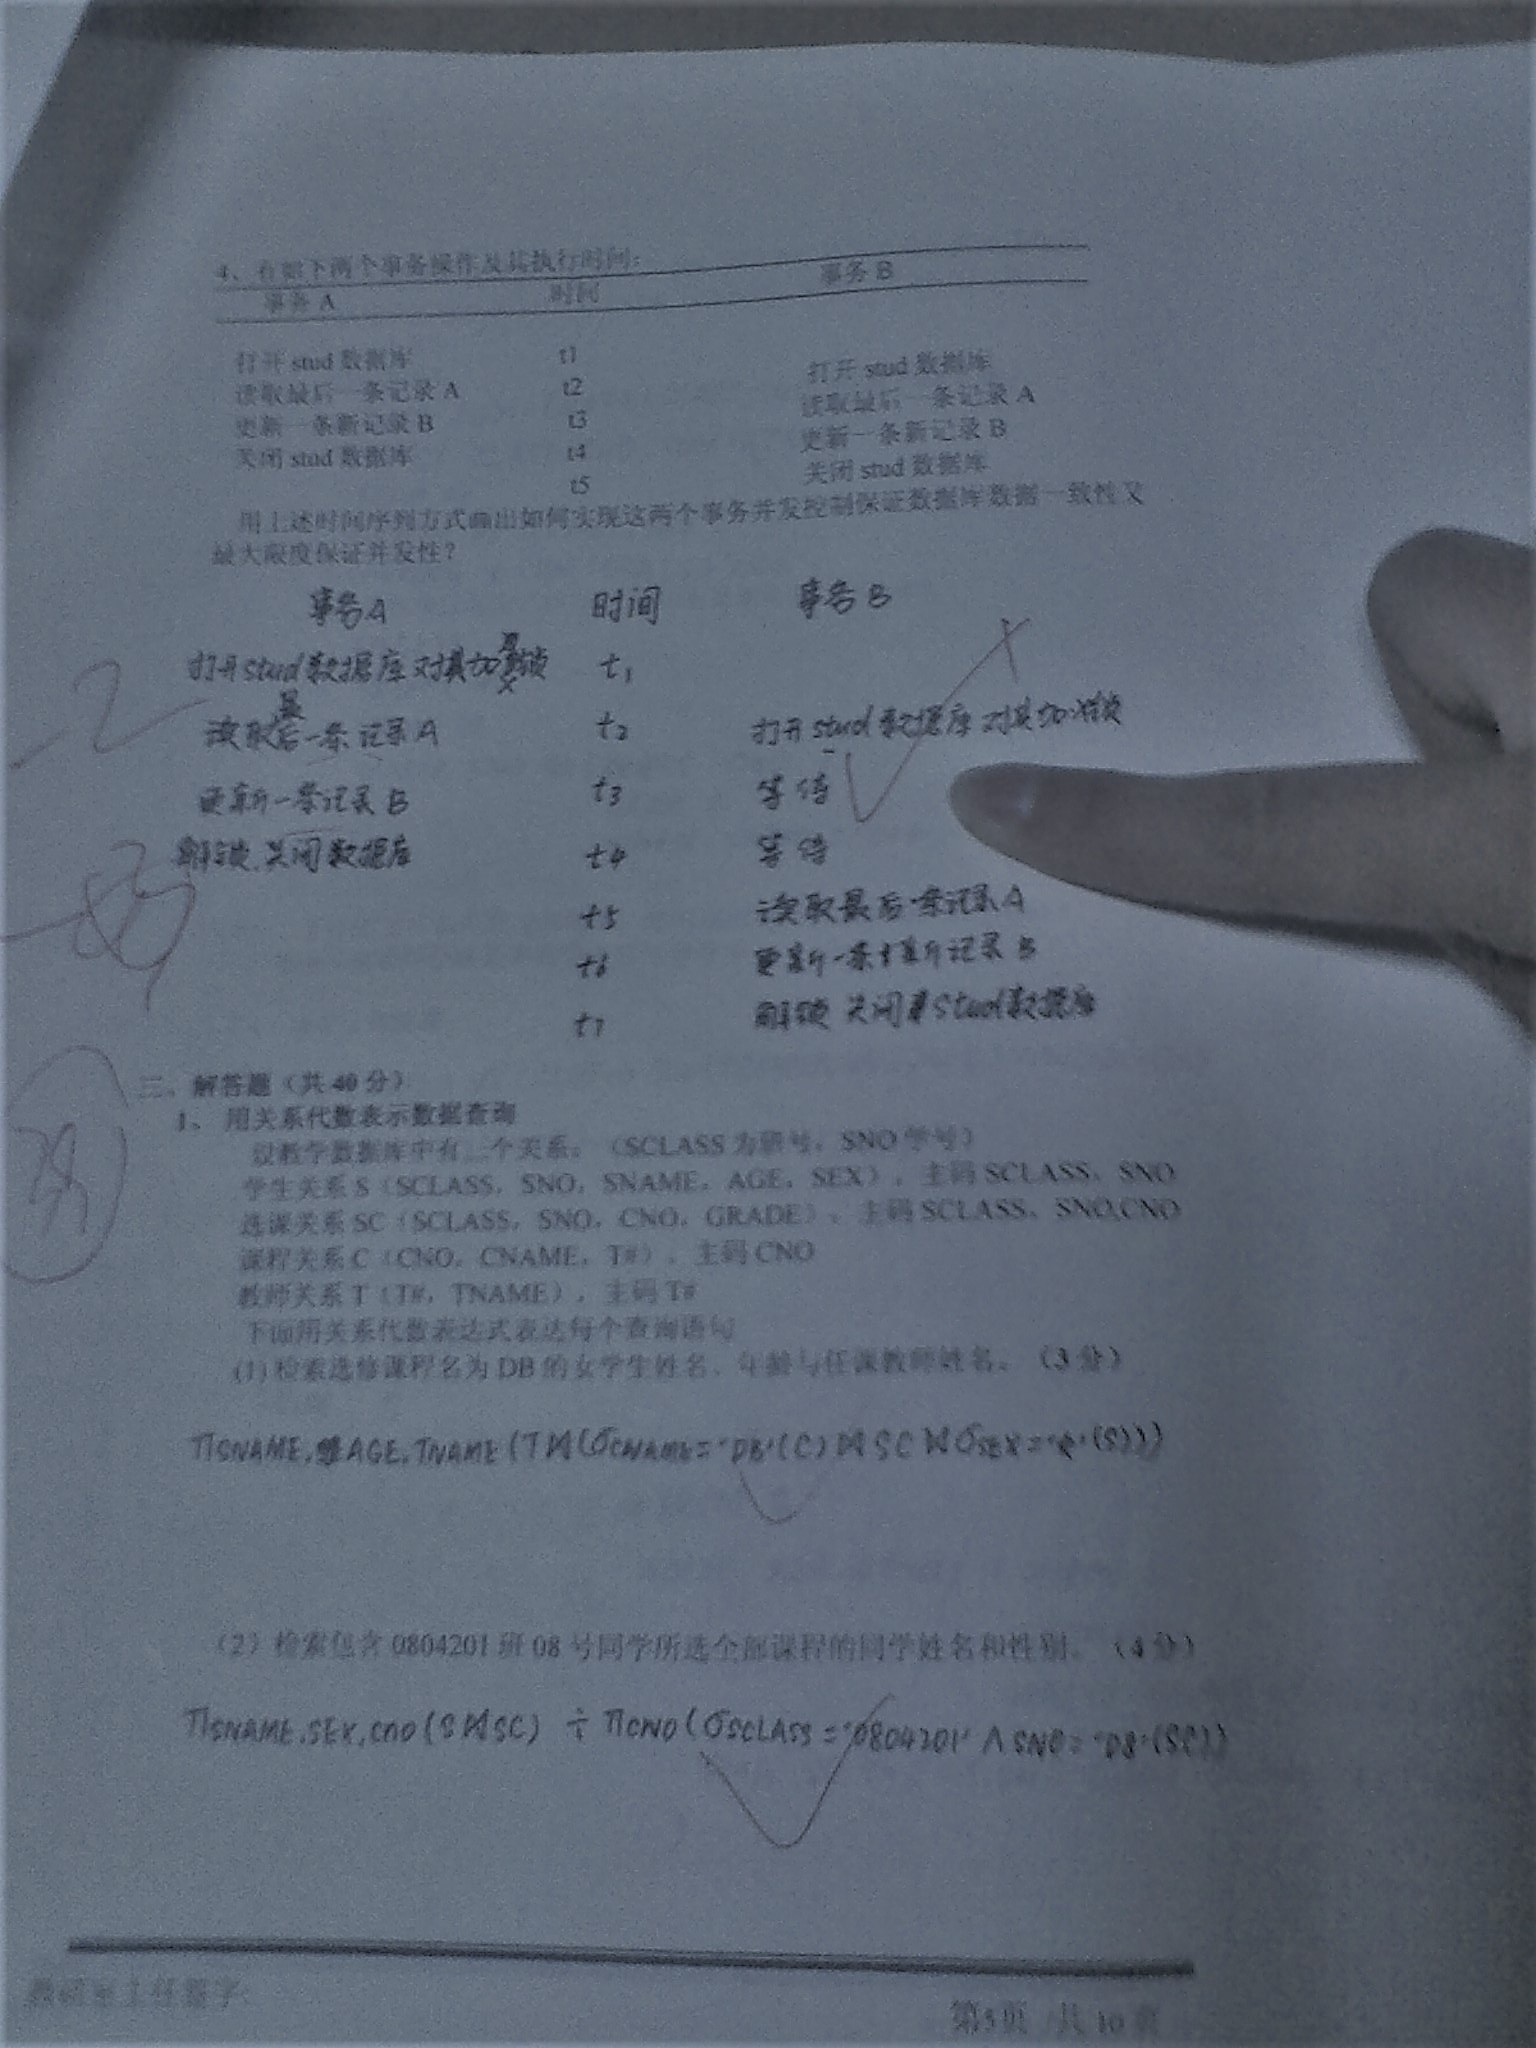 4、有如下两个事务操作及其执行时间：
事务 A 时间 事务 B
打开 stud 数据库 t1
读取最后一条记录 A t2 打开 stud 数据库
更新一条新记录 B t3 读取最后一条记录 A
关闭 stud 数据库 t4 更新一条新记录 B
t5 关闭 stud 数据库
用上述时间序列方式画出如何实现这两个事务并发控制保证数据库数据一致性又
最大限度保证并发性？
事务A 时间 事务B
打开stud数据库 对其加 锁 t1
读取最后一条记录A t2 打开stud数据库 对其加 锁
更新一条记录B t3 等待
解锁.关闭数据库 t4 等待
t5 读取最后一条记录A
t6 更新一条 新记录B
t7 解锁 关闭 stud数据库
三、解答题（共 40 分）
1、用关系代数表示数据查询
设教学数据库中有 个关系。（SCLASS 为班号，SNO 学号）
学生关系 S（SCLASS，SNO，SNAME，AGE，SEX），主码 SCLASS，SNO
选课关系 SC（SCLASS，SNO，CNO，GRADE），主码 SCLASS，SNO,CNO
课程关系 C（CNO，CNAME，T#），主码 CNO
教师关系 T（T#，TNAME），主码 T#
下面用关系代数表达式表达每个查询语句
(1) 检索选修课程名为 DB 的女学生姓名、年龄与任课教师姓名。（3 分）
ΠSNAME,AGE,TNAME(T⋈(σCNAME='DB'(C)⋈SC⋈σSEX='女'(S)))
（2）检索包含 0804201 班 08 号同学所选全部课程的同学姓名和性别。（4 分）
ΠSNAME,SEX,CNO(S⋈SC) ÷ ΠCNO(σSCLASS='0804201'∧SNO='08'(SC))
教研室主任签字:
第5页 共 10 页